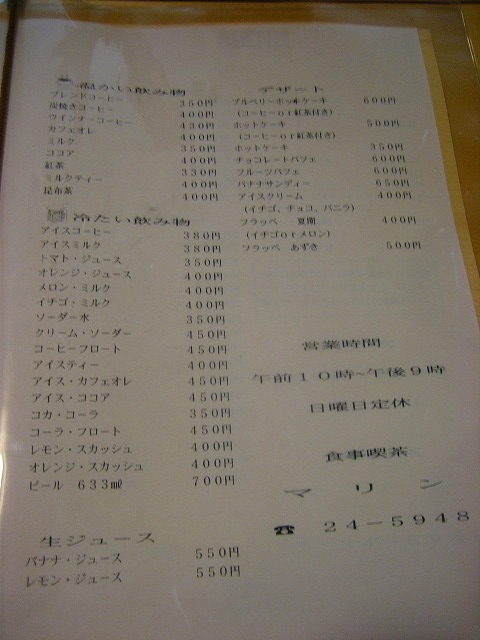 温かい飲み物
ブレンドコーヒー 350円
炭焼きコーヒー 400円
ウインナーコーヒー 430円
カフェオレ 400円
ミルク 350円
ココア 400円
紅茶 330円
ミルクティー 400円
昆布茶 400円
冷たい飲み物
アイスコーヒー 380円
アイスミルク 380円
トマト・ジュース 350円
オレンジ・ジュース 400円
メロン・ミルク 400円
イチゴ・ミルク 400円
ソーダー水 350円
クリーム・ソーダー 450円
コーヒーフロート 450円
アイスティー 400円
アイス・カフェオレ 450円
アイス・ココア 450円
コカ・コーラ 350円
コーラ・フロート 450円
レモン・スカッシュ 400円
オレンジ・スカッシュ 400円
ビール 633㎖ 700円
生ジュース
バナナ・ジュース 550円
レモン・ジュース 550円
デザート
ブルベリーホットケーキ 600円
(コーヒーor紅茶付き)
ホットケーキ 500円
(コーヒーor紅茶付き)
ホットケーキ 350円
チョコレートパフェ 600円
フルーツパフェ 600円
バナナサンディー 650円
アイスクリーム 400円
(イチゴ、チョコ、バニラ)
フラッペ 夏期 400円
(イチゴorメロン)
フラッペ あずき 500円
営業時間
午前10時~午後9時
日曜日定休
食事喫茶
マリン
☎ 24-5948